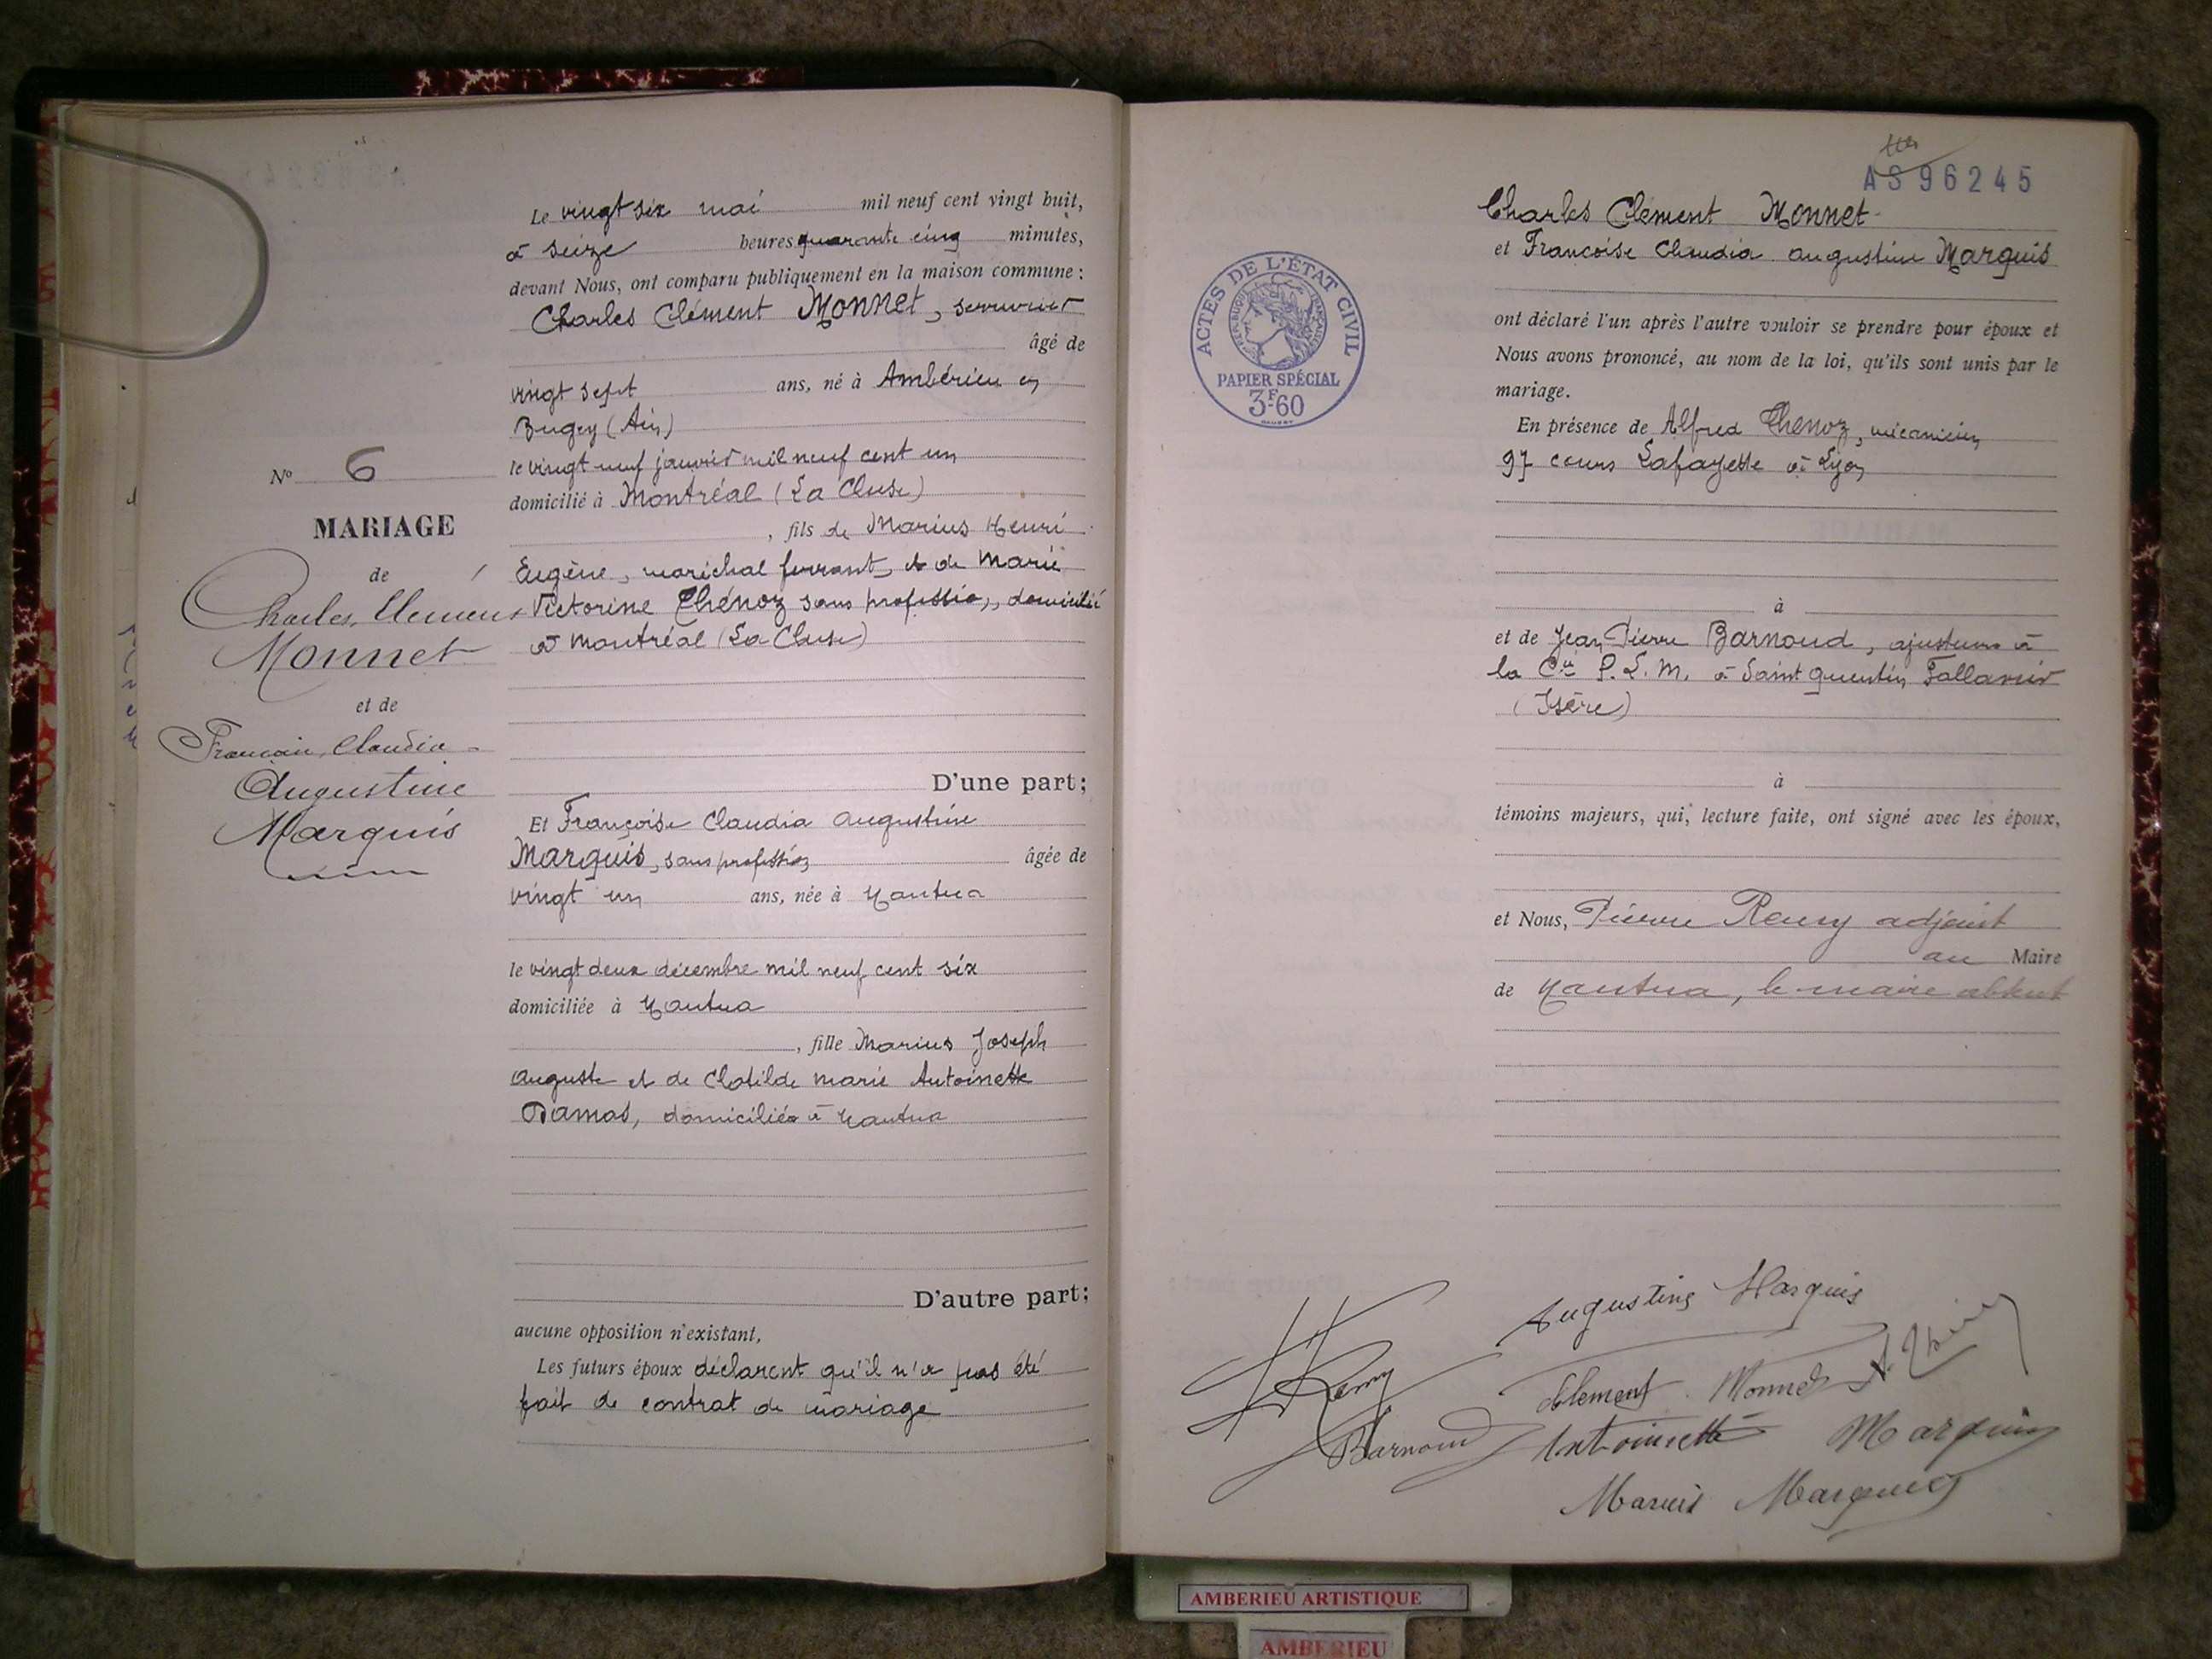 N° 6
MARIAGE
de
Charles, Clément
Monnet
et de
Françoise, Claudia
Augustine
Marquis
Le vingt six mai mil neuf cent vingt huit,
à seize heures quarante cinq minutes,
devant Nous, ont comparu publiquement en la maison commune :
Charles Clément Monnet, serrurier
âgé de
vingt sept ans, né à Ambérieu en
Bugey (Ain)
le vingt neuf janvier mil neuf cent un
domicilié à Montréal (La Cluse)
, fils de Marius Henri
Eugène, maréchal ferrant, et de Marie
Victorine Thénoz sans profession, domiciliés
à Montréal (La Cluse)
D'une part;
Et Françoise Claudia Augustine
Marquis, sans profession âgée de
vingt un ans, née à Nantua
le vingt deux décembre mil neuf cent six
domiciliée à Nantua
, fille Marius Joseph
Auguste et de Clotilde Marie Antoinette
Damas, domiciliés à Nantua
D'autre part;
aucune opposition n'existant,
Les futurs époux déclarent qu'il n'a pas été
fait de contrat de mariage
96245
Charles Clément Monnet
et Françoise Claudia Augustine Marquis
ACTES DE L'ÉTAT CIVIL
PAPIER SPÉCIAL
3F60
ont déclaré l'un après l'autre vouloir se prendre pour époux et
Nous avons prononcé, au nom de la loi, qu'ils sont unis par le
mariage.
En présence de Alfred Thenoz, mécanicien
97 cours Lafayette à Lyon
à
et de Jean-Pierre Barnoud, ajusteur à
la Cie P.L.M. à Saint Quentin Fallavier
(Isère)
à
témoins majeurs, qui, lecture faite, ont signé avec les époux,
et Nous, Pierre Remy adjoint
au Maire
de Nantua, le maire absent
Augustine Marquis
Remy
Clément Monnet
Barnoud
Antoinette Marquis
Marius Marquis
AMBERIEU ARTISTIQUE
AMBERIEU